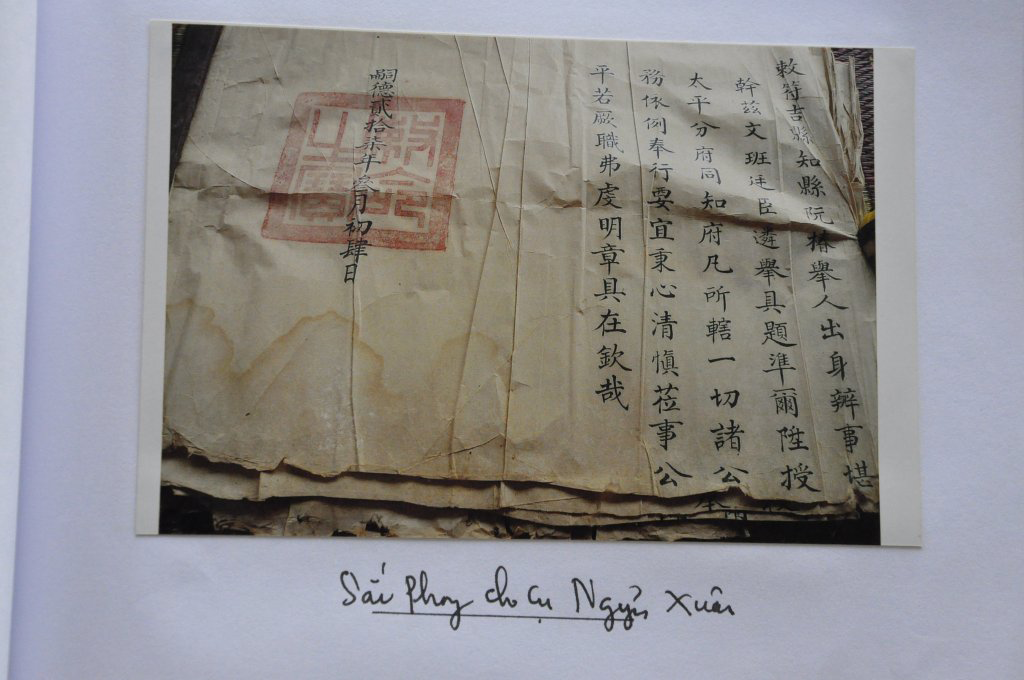 敕符吉縣知縣阮椿舉人出身辦事堪
幹茲文班廷臣遴舉具題準爾陞授
太平分府同知府凡所轄一切諸公
務依例奉行要宜秉心清慎莅事公
平若厥職弗虔明章具在欽哉
嗣德貳拾柒年叄月初肆日
Sắc phong cho cụ Nguyễn Xuân